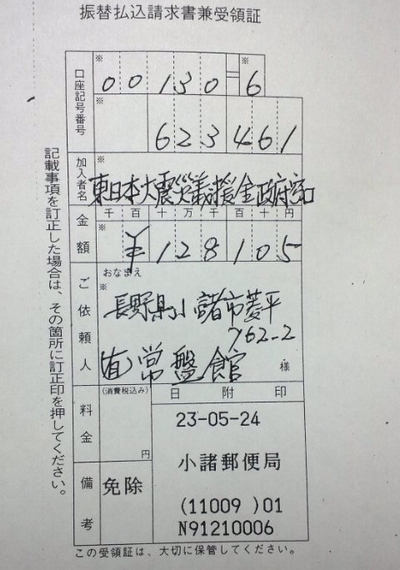 振替払込請求書兼受領証
口座記号番号
※
00130=6
※
623461
加入者名
※
東日本大震災義援金政府窓口
金額
千百十万千百十円
※
¥128105
ご依頼人
おなまえ
※
長野県小諸市菱平
762-2
(有)常盤館
様
料金
(消費税込み)
円
備考
免除
日附印
23-05-24
小諸郵便局
(11009 )01
N91210006
記載事項を訂正した場合は、その箇所に訂正印を押してください。
この受領証は、大切に保管してください。